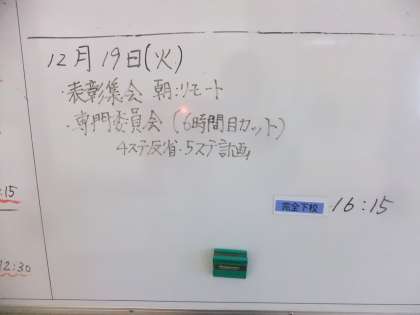 12月19日(火)
・表彰集会 朝:リモート
・専門委員会(6時間目カット)
4ステ反省・5ステ計画
完全下校 16:15
:15
12:30